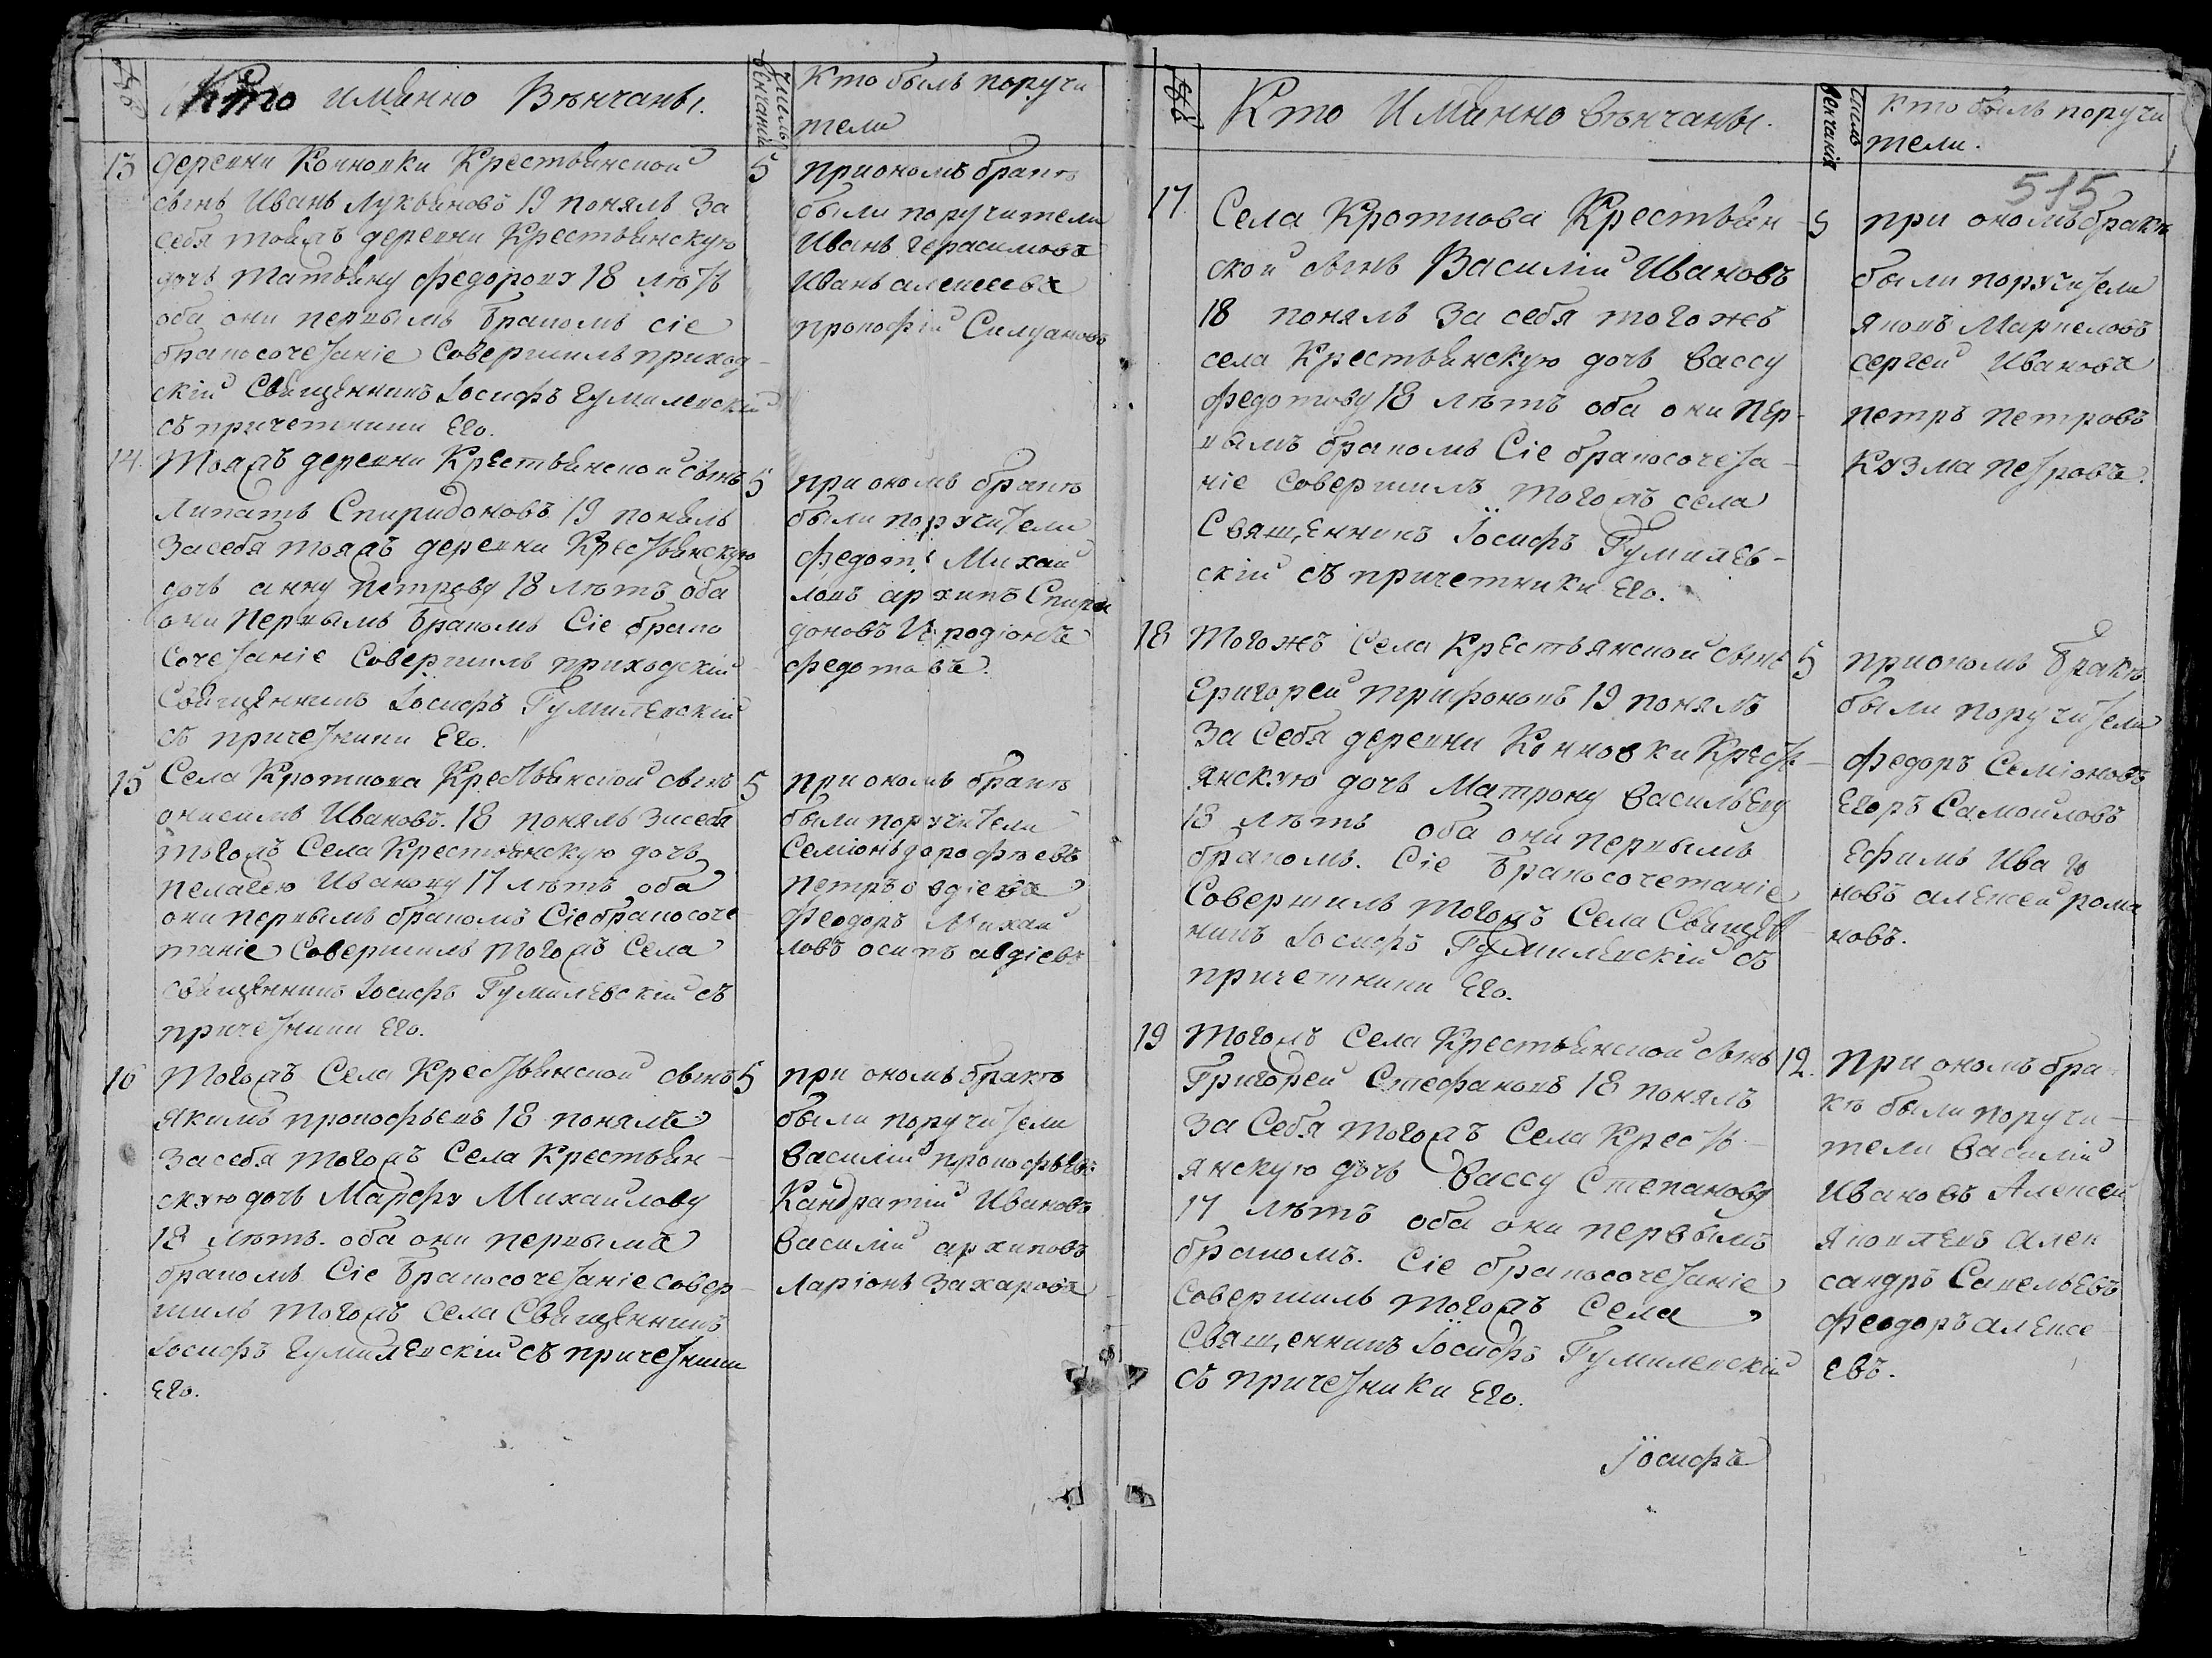 №
Кто имянно Венчаны.
число венчаній
Кто былъ поручи
тели
13 деревни Конновки Крестьянской 5
сынъ Иванъ Лукьяновъ 19 понялъ За
себя тояжъ деревни Крестьянскую
дочь Татьяну Федорову 18 лѣтъ
оба они первымъ бракомъ сіе
бракосочетаніе Совершилъ приход-
скій Священникъ Іосифъ Гумилевскій
съ причетники Его.
приономъ бракѣ
были поручители
Иванъ Герасимовъ
Иванъ алексеевъ
прокофій
14. Тояжъ деревни Крестьянской сынъ 5
Липатъ Спиридоновъ 19 понялъ
За себя тояжъ деревни Крестьянскую
дочь анну Петрову 18 лѣтъ оба
они Первымъ бракомъ Сіе брако
сочетаніе Совершилъ приходскій
Священникъ Іосифъ Гумилевскій
съ причетники Его.
при ономъ бракѣ
были поручители
Федотъ Михаи
ловъ архипъ Спири
доновъ Иродіонъ
Федотовъ.
15 Села Кроткова Крестьянской сынъ 5
онисимъ Ивановъ. 18 понялъ За себя
тогожъ Села Крестьянскую дочь
пелагею Иванову 17 лѣтъ оба
они первымъ бракомъ Сіе бракосоче
таніе Совершилъ тогожъ Села
священникъ Іосифъ Гумилевскій съ
причетники Его.
при ономъ бракѣ
были поручители
Семіонъ дорофѣевъ
петръ
Феодоръ Михаи
ловъ осипъ авдіевъ
16 Тогожъ Села Крестьянской сынъ 5
якимъ прокофьевъ 18 понялъ
За себя тогожъ Села Крестьян-
скую дочь Марфу Михаилову
18 лѣтъ. оба они первымъ
бракомъ Сіе бракосочетаніе совер-
шилъ тогожъ села Священникъ
Іосифъ Гумилевскій съ причетники
Его.
при ономъ бракѣ
были поручители
Василій прокофьевъ
Кандратій Ивановъ
Василій архиповъ
Ларіонъ Захаровъ
№
Кто Имянно венчаны.
число венчанія
Кто былъ поручи
тели.
515
17 Села Кроткова Крестьян- 5
ской сынъ Василій Ивановъ
18 понялъ За себя тогожъ
села Крестьянскую дочь Вассу
Федотову 18 лѣтъ оба они пер-
вымъ бракомъ Сіе бракосочета-
ніе Совершилъ тогожъ села
Священникъ Іосифъ Гумилев-
скій съ причетники Его.
при ономъ бракѣ
были поручители
яковъ Маркеловъ
сергей Ивановъ
петръ петровъ
Кузма петровъ.
18 Тогожъ Села Крестьянской сынъ 5
Григорей трифоновъ 19 понялъ
За Себя деревни Конновки Кресть-
янскую дочь Матрону Васильеву
18 лѣтъ оба они первымъ
бракомъ. Сіе бракосочетаніе
Совершилъ тогожъ Села Священ
никъ Іосифъ Гумилевскій съ
причетники Его.
приономъ бракѣ
были поручители
Федоръ Семіоновъ
Егоръ Самоиловъ
Ефимъ Ива
новъ алексей рома
новъ.
19 Тогожъ Села Крестьянской сынъ 12.
Григорей Стефановъ 18 понялъ
За Себя тогожъ Села Кресть-
янскую дочь Вассу Степанову
17 лѣтъ оба они первымъ
бракомъ. Сіе бракосочетаніе
Совершилъ тогожъ Села
Священникъ Іосифъ Гумилевскій
съ причетники Его.
При ономъ бра-
кѣ были поручи-
тели Василій
Ивановъ Алексей
яковлевъ алек
сандръ Савельевъ
Феодоръ алексе
евъ.
Іосифъ